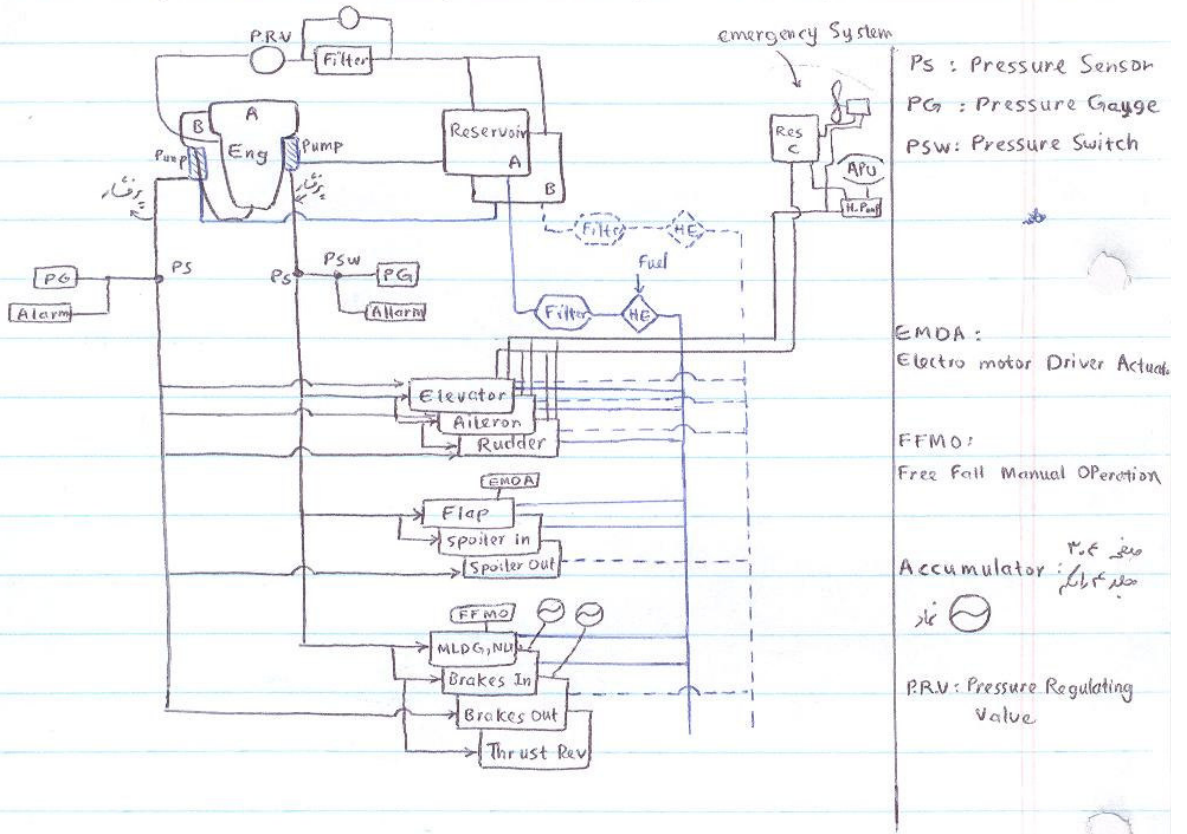 P.R.V
Filter
emergency System
B
A
Eng
Pump
Pump
پرفشار
پرفشار
Reservoir
A
B
Res
C
APU
H.Pump
Filter
HE
Fuel
Filter
HE
PS
PG
Alarm
PS
PSW
PG
Allarm
Elevator
Aileron
Rudder
EMDA
Flap
Spoiler in
Spoiler Out
FFMO
Brakes In
Brakes Out
Thrust Rev
PS : Pressure Sensor
PG : Pressure Gauge
PSW: Pressure Switch
EMDA :
Electro motor Driver Actuat.
FFMO:
Free Fall Manual OPeration
Accumulator :
نماد
P.R.V : Pressure Regulating
Value